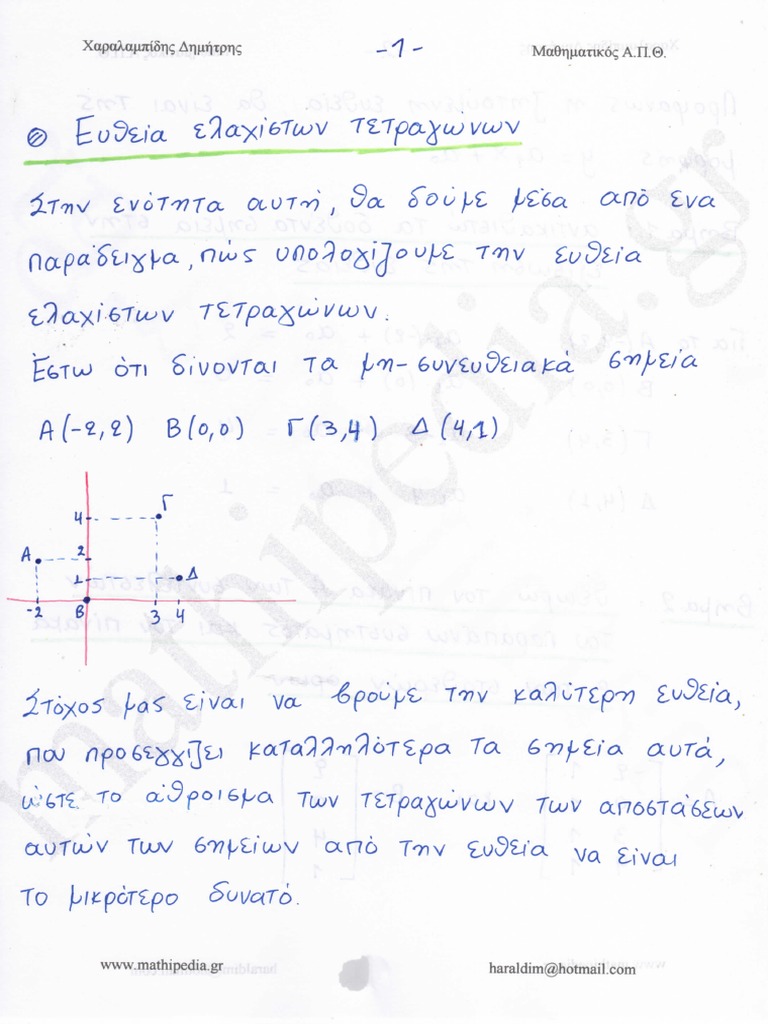 Χαραλαμπίδης Δημήτρης -1- Μαθηματικός Α.Π.Θ.
Ευθεία ελαχίστων τετραγώνων
Στην ενότητα αυτή, θα δούμε μέσα από ενα
παράδειγμα, πώς υπολογίζουμε την ευθεία
ελαχίστων τετραγώνων.
Έστω ότι δίνονται τα μη-συνευθειακά σημεία
Α(-2,2) Β(0,0) Γ(3,4) Δ(4,1)
Γ
4
Α
2
1
Δ
-2
Β
3
4
Στόχος μας είναι να βρούμε την καλύτερη ευθεία,
που προσεγγίζει καταλληλότερα τα σημεία αυτά,
ώστε το άθροισμα των τετραγώνων των αποστάσεων
αυτών των σημείων από την ευθεία να είναι
το μικρότερο δυνατό.
www.mathipedia.gr haraldim@hotmail.com
mathipedia.gr